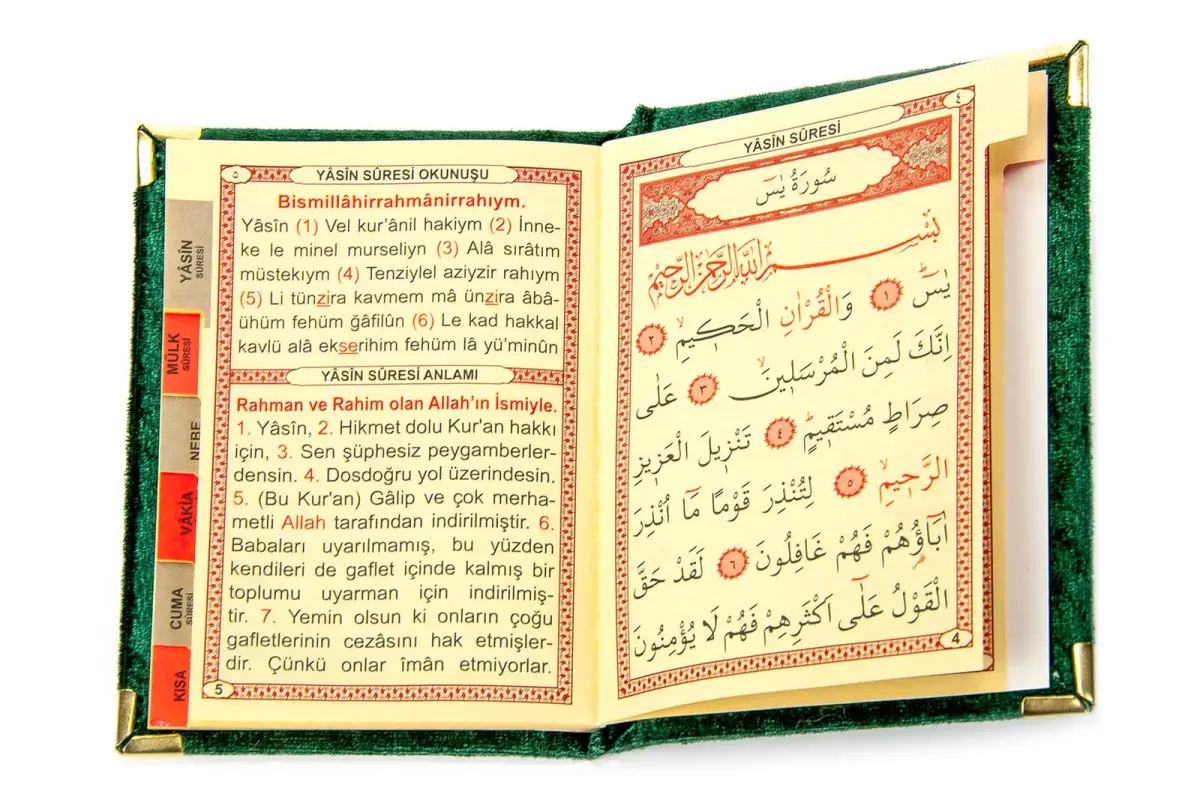 ٤
YÂSİN SÛRESİ
سُورَةُ يٰسٓ
بِسْمِ اللّٰهِ الرَّحْمٰنِ الرَّحِيمِ
يٰسٓ ١ وَالْقُرْاٰنِ الْحَك۪يمِۙ ٢
اِنَّكَ لَمِنَ الْمُرْسَل۪ينَۙ ٣ عَلٰى
صِرَاطٍ مُسْتَق۪يمٍۜ ٤ تَنْز۪يلَ الْعَز۪يزِ
الرَّح۪يمِۙ ٥ لِتُنْذِرَ قَوْمًا مَٓا اُنْذِرَ
اٰبَٓاؤُ۬هُمْ فَهُمْ غَافِلُونَ ٦ لَقَدْ حَقَّ
الْقَوْلُ عَلٰٓى اَكْثَرِهِمْ فَهُمْ لَا يُؤْمِنُونَ
4
٥
YÂSİN SÛRESİ OKUNUŞU
Bismillâhirrahmânirrahıym.
Yâsîn (1) Vel kur'ânil hakiym (2) İnne-
ke le minel murseliyn (3) Alâ sırâtım
müstekıym (4) Tenziylel aziyzir rahıym
(5) Li tünzira kavmem mâ ünzira âbâ-
ühüm fehüm ğâfilûn (6) Le kad hakkal
kavlü alâ ekserihim fehüm lâ yü'minûn
YÂSİN SÛRESİ ANLAMI
Rahman ve Rahim olan Allah'ın İsmiyle.
1. Yâsîn, 2. Hikmet dolu Kur'an hakkı
için, 3. Sen şüphesiz peygamberler-
densin. 4. Dosdoğru yol üzerindesin.
5. (Bu Kur'an) Gâlip ve çok merha-
metli Allah tarafından indirilmiştir. 6.
Babaları uyarılmamış, bu yüzden
kendileri de gaflet içinde kalmış bir
toplumu uyarman için indirilmiş-
tir. 7. Yemin olsun ki onların çoğu
gafletlerinin cezâsını hak etmişler-
dir. Çünkü onlar îmân etmiyorlar.
5
YÂSİN
SÛRESİ
MÜLK
SÛRESİ
NEBE
VÂKIA
CUMA
SÛRESİ
KISA